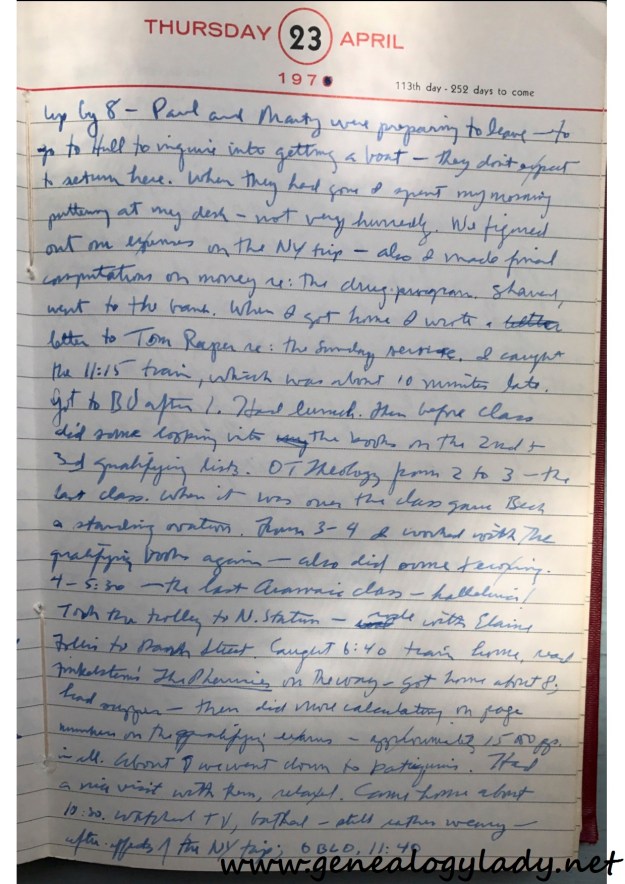 THURSDAY 23 APRIL
197
113th day - 252 days to come
Up by 8 – Paul and Marty were preparing to leave – to
go to Hull to inquire into getting a boat – they don't expect
to return here. When they had gone I spent my morning
puttering at my desk – not very hurriedly. We figured
out our expenses on the NY trip – also I made final
computations on money re: the drug program. Shaved,
went to the bank. When I got home I wrote a letter
letter to Tom Raper re: the Sunday service. I caught
the 11:15 train, which was about 10 minutes late.
Got to BU after 1. Had lunch. Then before class
did some looking into the books on the 2nd &
3rd qualifying lists. OT Theology from 2 to 3 – the
last class. When it was over the class gave Beck
a standing ovation. From 3-4 I worked with the
qualifying books again – also did some
4-5:30 – the last Aramaic class – halleluia!
Took the trolley to N. Station – rode with Elaine
to Street. Caught 6:40 train home, read
Finkelstein's The Pharisees on the way – got home about 8,
had supper – then did more calculating on page
numbers on the qualifying exams – approximately 15000 pp.
in all. About we went down to Had
a nice visit with them, relaxed. Came home about
10:30. Watched TV, bathed – still rather weary –
after-effects of the NY trip; 11:40
www.genealogylady.net